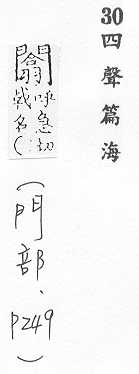 30四聲篇海
闟呼急切
戟名(
(門部、P249)